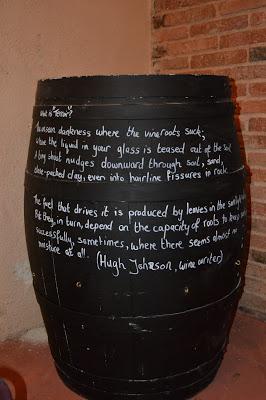 What is "Terroir"?
The unseen darkness where the vine roots suck;
where the liquid in your glass is teased out of the soil
A tiny shoot nudges downward through soil, sand,
close-packed clay, even into hairline fissures in rock.
The fuel that drives it is produced by leaves in the sunlight
But they, in turn, depend on the capacity of roots to
successfully, sometimes, where there seems almost no
moisture at all. (Hugh Johnson, wine writer)